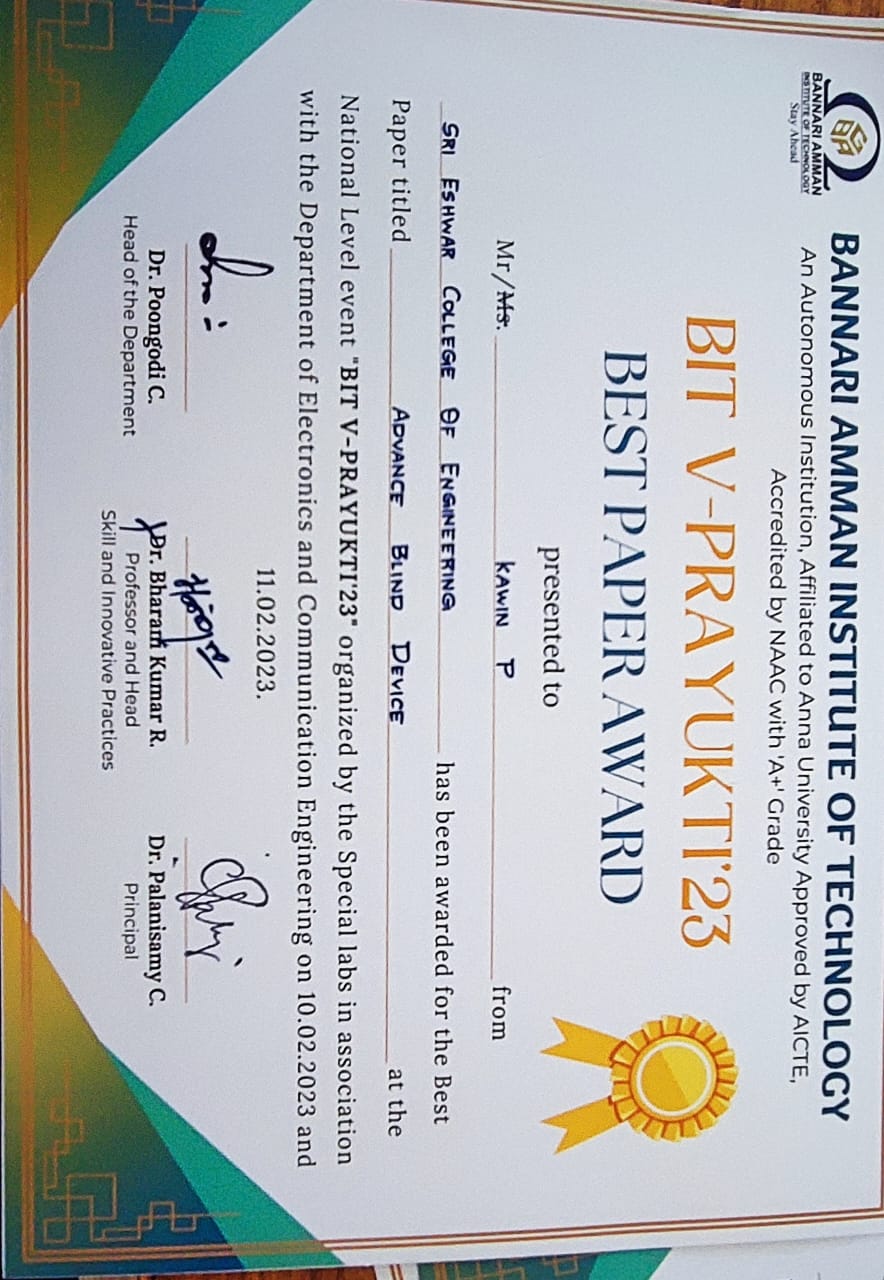 BANNARI AMMAN
INSTITUTE OF TECHNOLOGY
Stay Ahead
BANNARI AMMAN INSTITUTE OF TECHNOLOGY
An Autonomous Institution, Affiliated to Anna University Approved by AICTE,
Accredited by NAAC with 'A+' Grade
BIT V-PRAYUKTI'23
BEST PAPER AWARD
presented to
Mr/Ms. KAWIN P from
SRI ESHWAR COLLEGE OF ENGINEERING has been awarded for the Best
Paper titled ADVANCE BLIND DEVICE at the
National Level event "BIT V-PRAYUKTI'23" organized by the Special labs in association
with the Department of Electronics and Communication Engineering on 10.02.2023 and
11.02.2023.
Dr. Poongodi C. Dr. Bharani Kumar R. Dr. Palanisamy C.
Head of the Department Professor and Head Principal
Skill and Innovative Practices